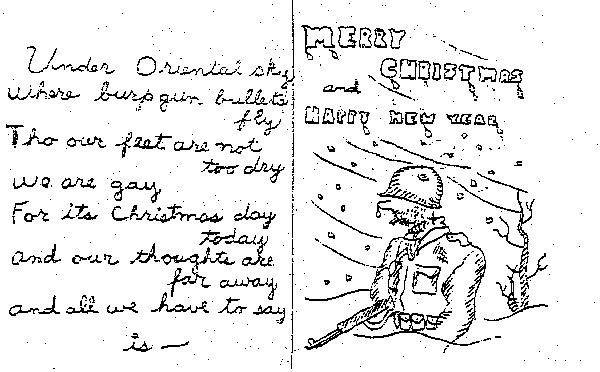 Under Oriental sky
Where burp gun bullets
fly
Tho our feet are not
too dry
we are gay
For its Christmas day
today
and our thoughts are
far away
and all we have to say
is —
MERRY
CHRISTMAS
and
HAPPY NEW YEAR